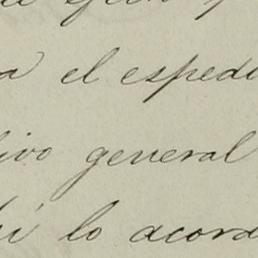 a el espedi
ivo general
í lo acord